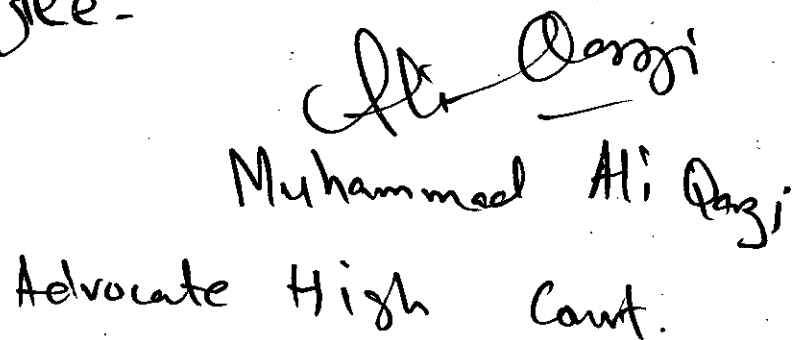 Ali Qazi
Muhammad Ali Qazi
Advocate High Court.